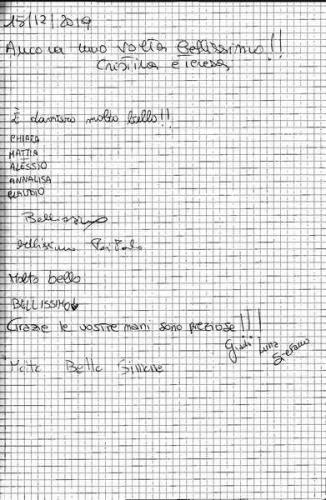 15/12/2019
Ancora una volta Bellissimo!!
Cristina e Teresa
È davvero molto bello!!
CHIARA
MATTIA
ALESSIO
ANNALISA
CLAUDIO
Bellissimo
Bellissimo
Molto bello
BELLISSIMO
Grazie le vostre mani sono preziose!!!
Giudi Luna Stefano
Bello Simone